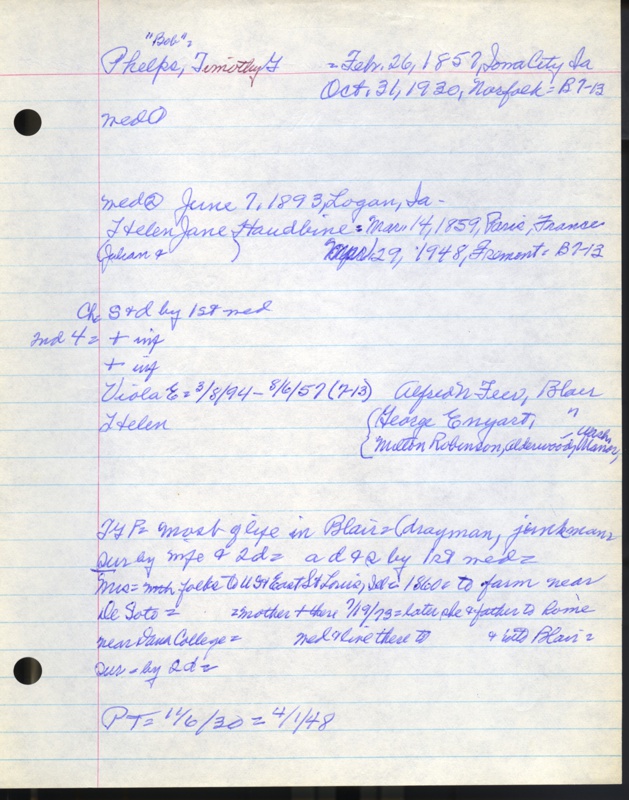 "Bob"=
Phelps, Timothy G = Feb. 26, 1857, Iowa City, Ia
Oct. 31, 1930, Norfolk = B7-13
med ①
med ② June 7, 1893, Logan, Ia -
Helen Jane Haudbine = Mar. 14, 1859, Paris, France
Julian & } Apr 29, 1948, Fremont = B7-13
Ch S & d by 1st med
2nd 4 = + inf
+ inf
Viola E = 3/8/94 - 8/6/57 (7-13) Alfred N Feer, Blair
Helen { George Enyart, "
{ Milton Robinson, Alderwood Manor, Wash.
TGP = most g life in Blair = (drayman, junkman
sur by wife & 2d = a d & s by 1st med =
Mrs = with folks to US & East St Louis, Ill = 1860 = to farm near
De Soto = = mother + there 7/19/73 = Later she & father to home
near Dana College = med & live there to & into Blair =
sur - by 2d =
PT = 11/6/30 = 4/1/48